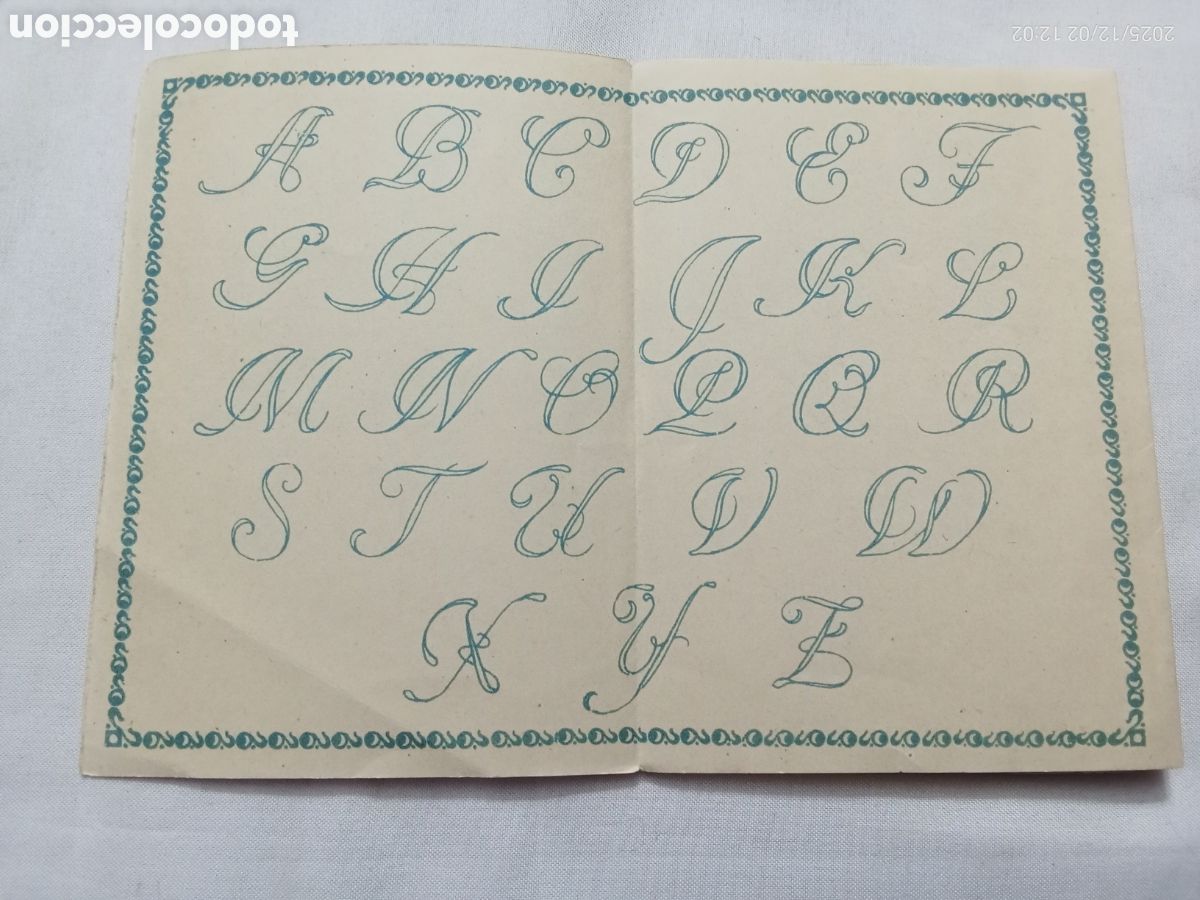 todocoleccion
2025/12/02 12:02
A B C D E F
G H I J K L
M N O P Q R
S T U V W
X Y Z